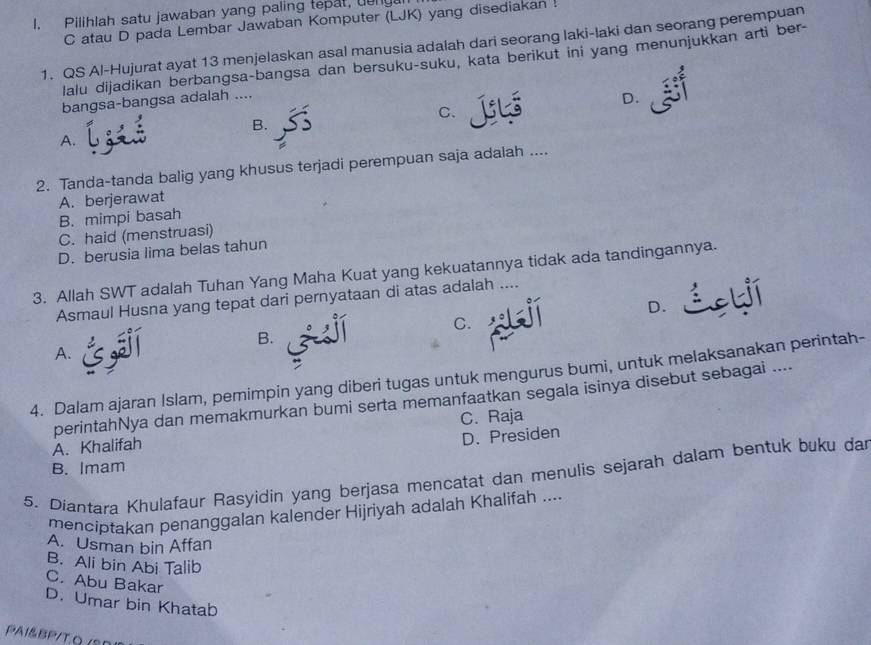 I. Pilihlah satu jawaban yang paling tepat,
C atau D pada Lembar Jawaban Komputer (LJK) yang disediakan !
1. QS Al-Hujurat ayat 13 menjelaskan asal manusia adalah dari seorang laki-laki dan seorang perempuan
lalu dijadikan berbangsa-bangsa dan bersuku-suku, kata berikut ini yang menunjukkan arti ber-
bangsa-bangsa adalah ....
A. شُعُوْبًا B. ذَكَرٍ C. قَبَائِلَ D. أُنْثَى
2. Tanda-tanda balig yang khusus terjadi perempuan saja adalah ....
A. berjerawat
B. mimpi basah
C. haid (menstruasi)
D. berusia lima belas tahun
3. Allah SWT adalah Tuhan Yang Maha Kuat yang kekuatannya tidak ada tandingannya.
Asmaul Husna yang tepat dari pernyataan di atas adalah ....
A. اَلْقَوِيُّ B. اَلْمُحْيِ C. اَلْعَلِيْمُ D. اَلْبَاعِثُ
4. Dalam ajaran Islam, pemimpin yang diberi tugas untuk mengurus bumi, untuk melaksanakan perintah-
perintahNya dan memakmurkan bumi serta memanfaatkan segala isinya disebut sebagai ....
A. Khalifah C. Raja
B. Imam D. Presiden
5. Diantara Khulafaur Rasyidin yang berjasa mencatat dan menulis sejarah dalam bentuk buku dan
menciptakan penanggalan kalender Hijriyah adalah Khalifah ....
A. Usman bin Affan
B. Ali bin Abi Talib
C. Abu Bakar
D. Umar bin Khatab
PAI&BP/T.O